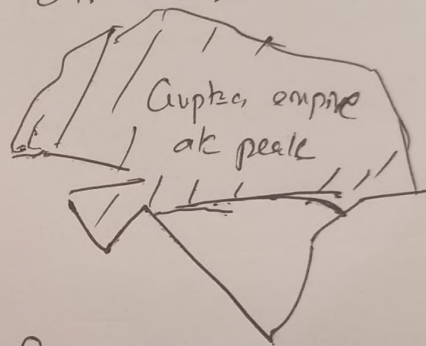 Gupta empire
at peak